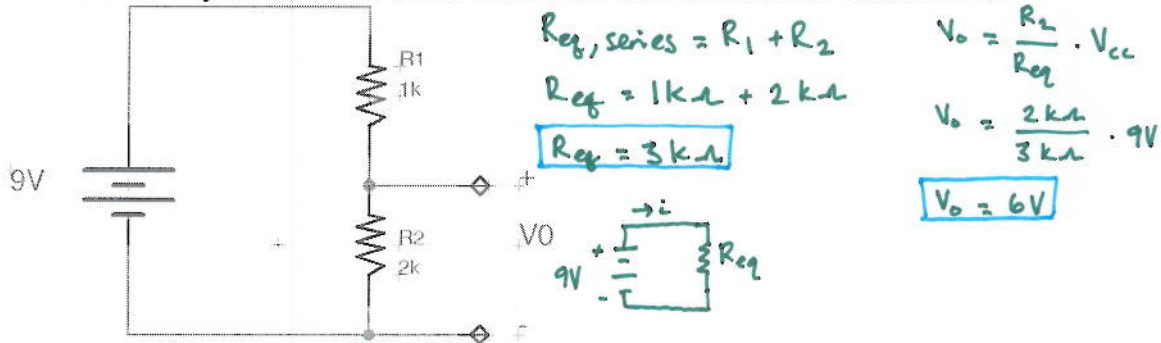 9V
R1
1k
R2
2k
+
V0
Req, series = R1 + R2
Req = 1kΩ + 2kΩ
Req = 3kΩ
→i
+
9V
-
Req
V0 = R2/Req · Vcc
V0 = 2kΩ/3kΩ · 9V
V0 = 6V